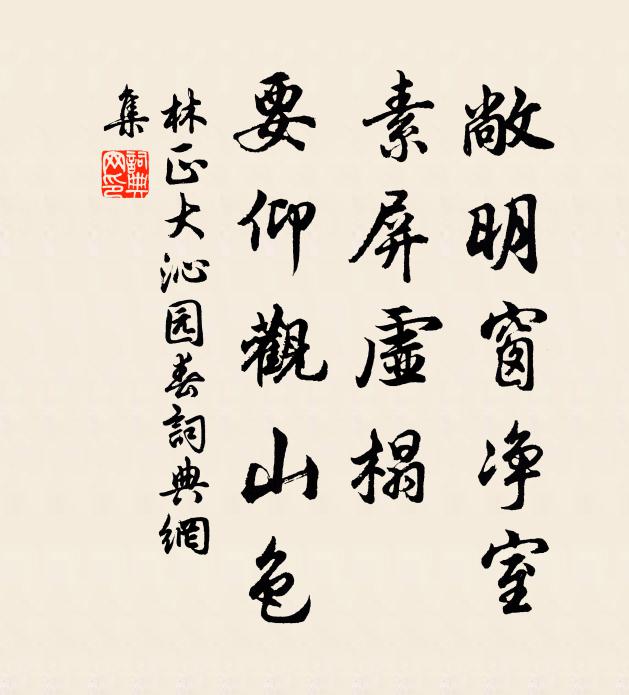 敞明窗净室
素屏虚榻
要仰觀山色
林正大沁园春詞典網
集
詞典
网印